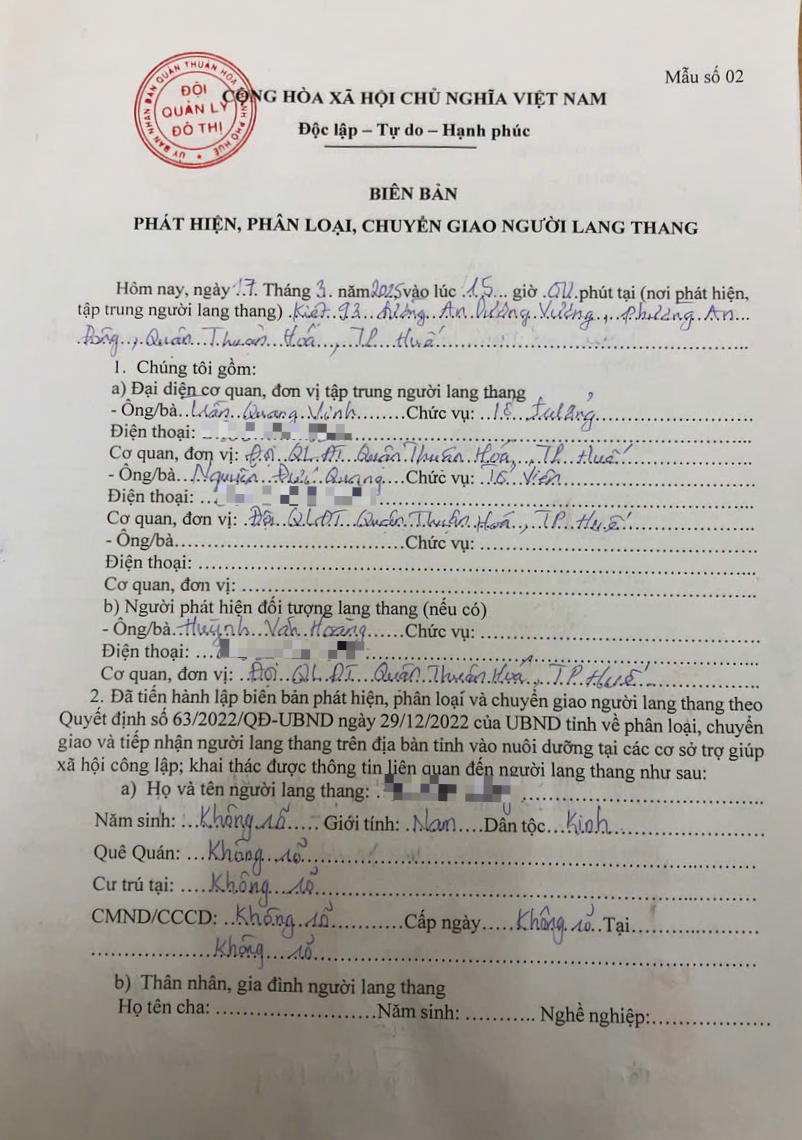 Mẫu số 02
ỦY BAN NHÂN DÂN QUẬN THUẬN HÓA THÀNH PHỐ HUẾ
ĐỘI
QUẢN LÝ
ĐÔ THỊ
CỘNG HÒA XÃ HỘI CHỦ NGHĨA VIỆT NAM
Độc lập – Tự do – Hạnh phúc
BIÊN BẢN
PHÁT HIỆN, PHÂN LOẠI, CHUYỂN GIAO NGƯỜI LANG THANG
Hôm nay, ngày 17. Tháng 3. năm 2025 vào lúc .15... giờ .00.phút tại (nơi phát hiện,
tập trung người lang thang) .Kiệt 93 đường An Dương Vương, phường An
Đông, Quận Thuận Hoá, TP Huế
1. Chúng tôi gồm:
a) Đại diện cơ quan, đơn vị tập trung người lang thang
- Ông/bà Trần Quang Vinh Chức vụ: Tổ trưởng
Điện thoại:
Cơ quan, đơn vị: Đội QLĐT Quận Thuận Hoá, TP Huế
- Ông/bà Nguyễn Đức Quang Chức vụ: Tổ viên
Điện thoại:
Cơ quan, đơn vị: Đội QLĐT Quận Thuận Hoá, TP Huế
- Ông/bà Chức vụ:
Điện thoại:
Cơ quan, đơn vị:
b) Người phát hiện đối tượng lang thang (nếu có)
- Ông/bà Huỳnh Văn Hoàng Chức vụ:
Điện thoại:
Cơ quan, đơn vị: Đội QLĐT Quận Thuận Hoá, TP Huế
2. Đã tiến hành lập biên bản phát hiện, phân loại và chuyển giao người lang thang theo
Quyết định số 63/2022/QĐ-UBND ngày 29/12/2022 của UBND tỉnh về phân loại, chuyển
giao và tiếp nhận người lang thang trên địa bàn tỉnh vào nuôi dưỡng tại các cơ sở trợ giúp
xã hội công lập; khai thác được thông tin liên quan đến người lang thang như sau:
a) Họ và tên người lang thang:
Năm sinh: Không rõ Giới tính: Nam Dân tộc Kinh
Quê Quán: Không rõ
Cư trú tại: Không rõ
CMND/CCCD: Không rõ Cấp ngày Không rõ Tại
Không rõ
b) Thân nhân, gia đình người lang thang
Họ tên cha: Năm sinh: Nghề nghiệp: